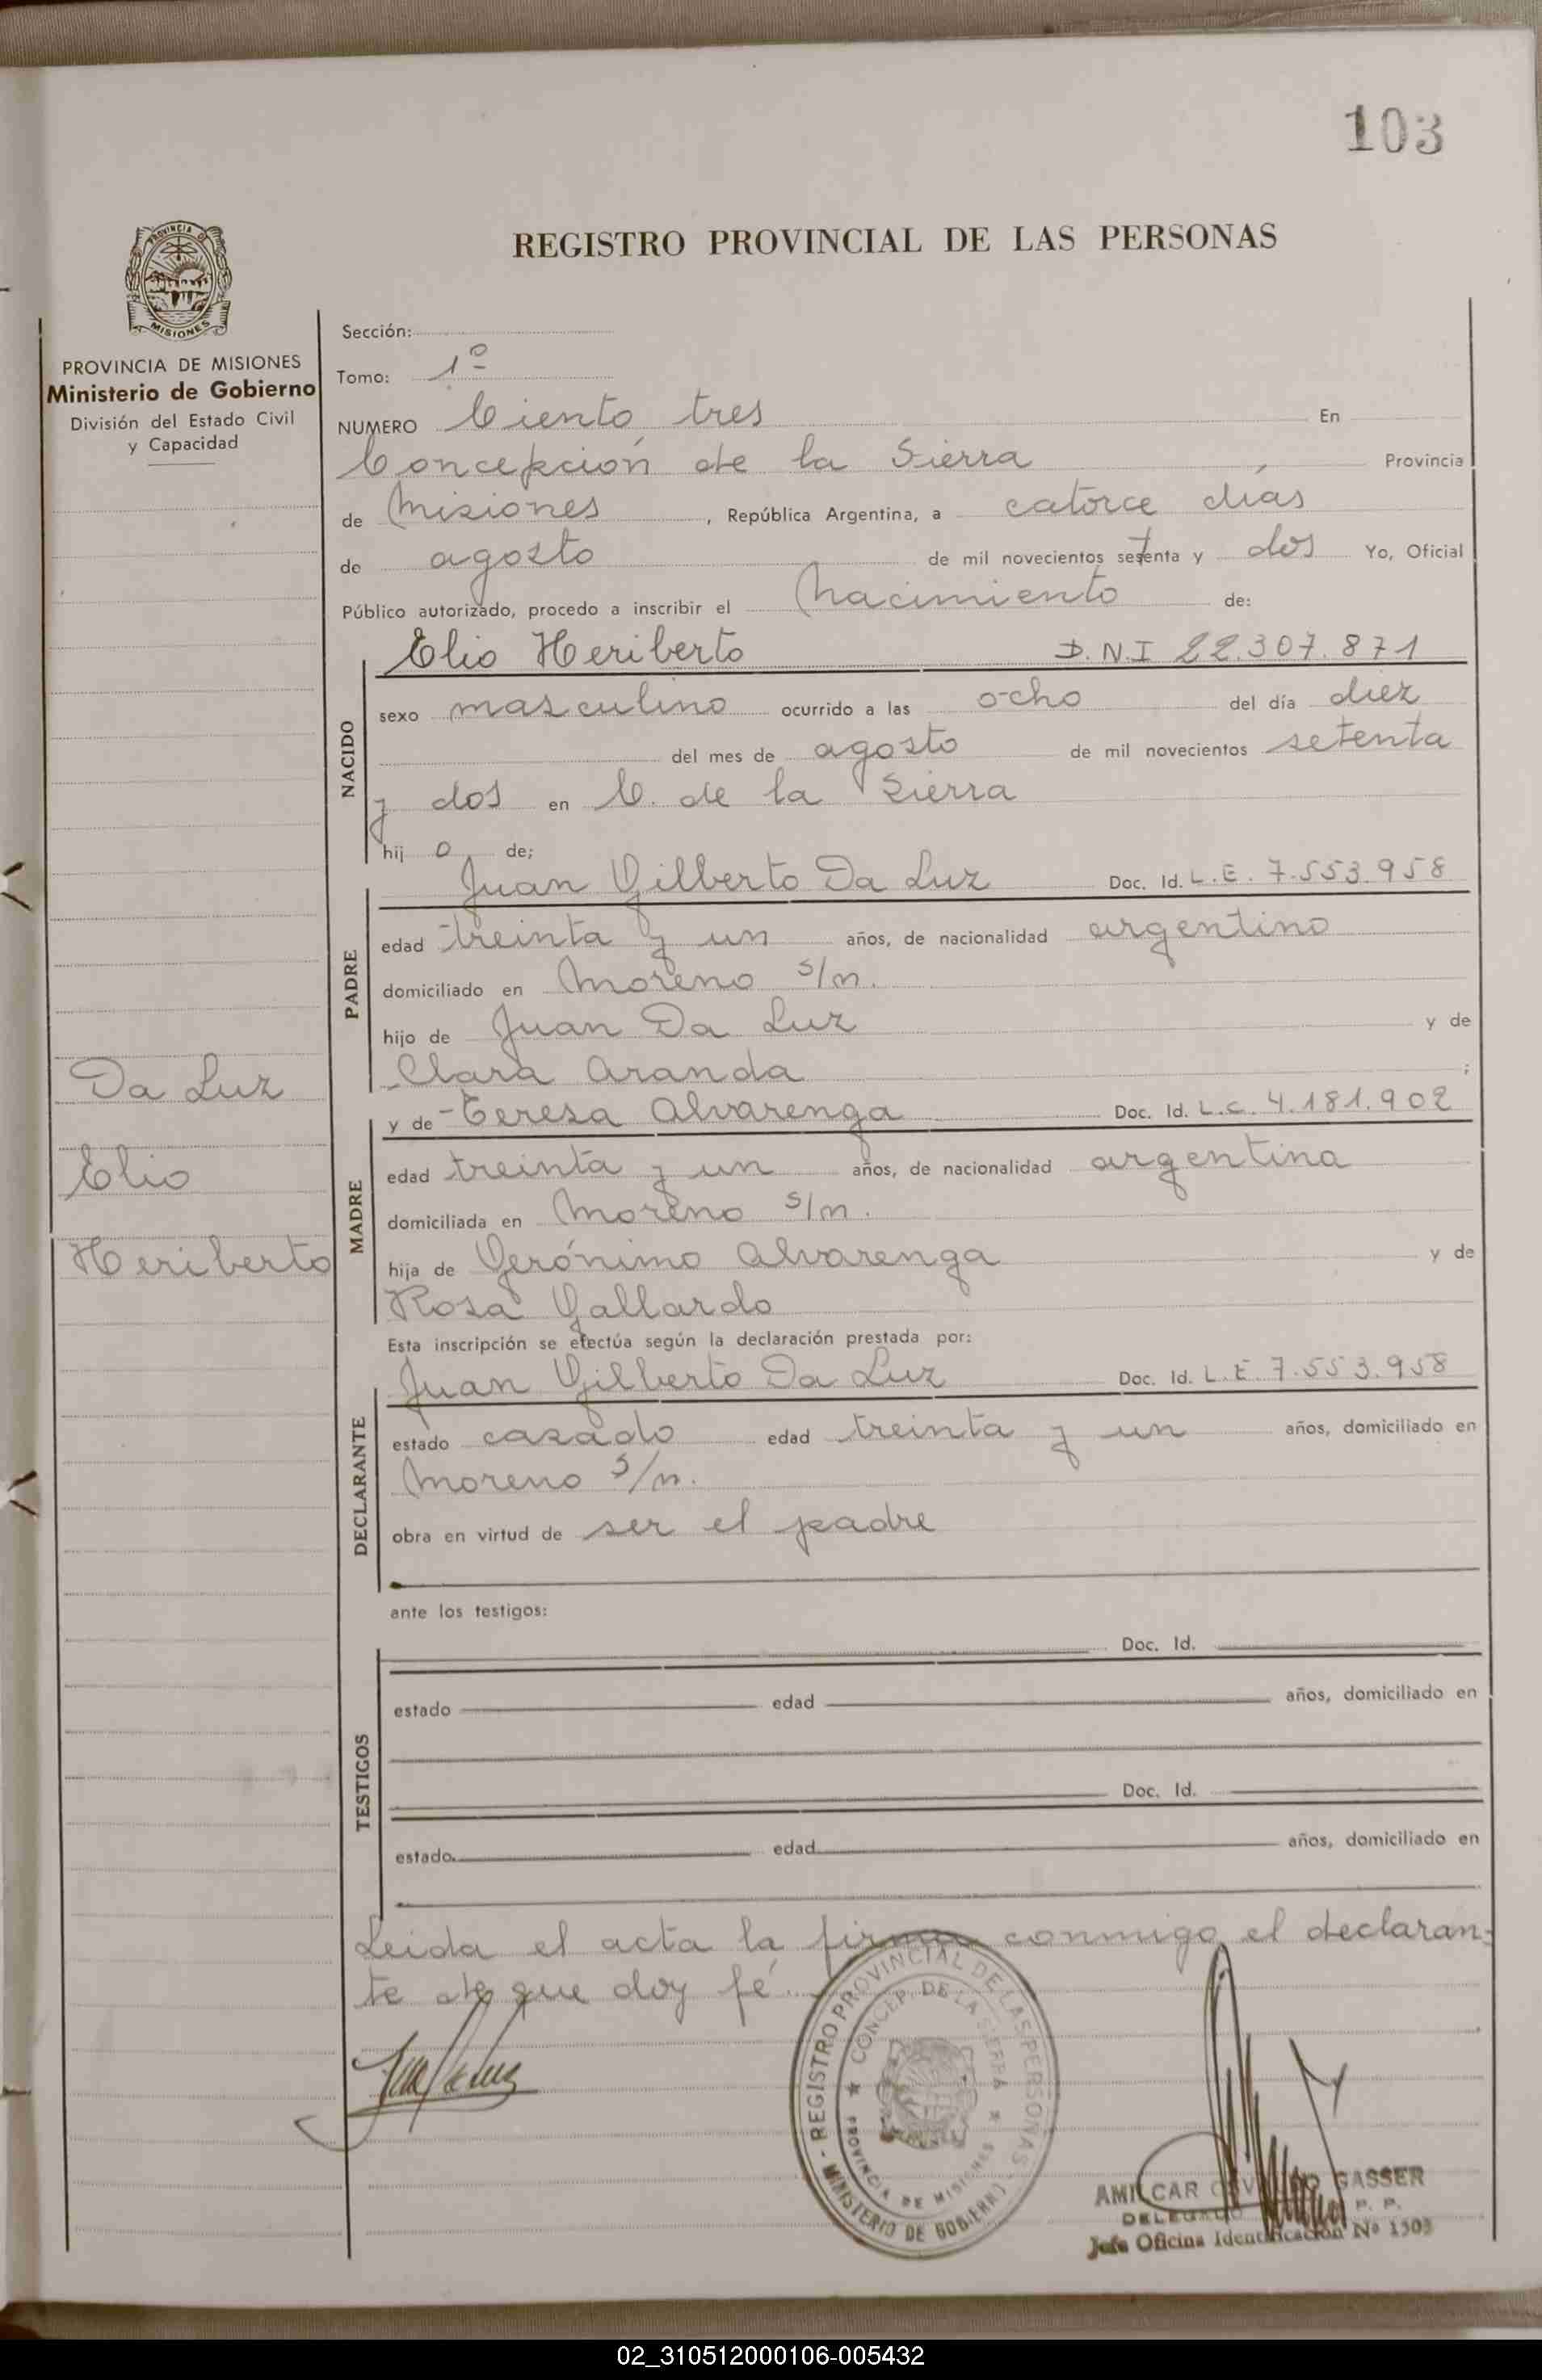 103
REGISTRO PROVINCIAL DE LAS PERSONAS
PROVINCIA DE
MISIONES
PROVINCIA DE MISIONES
Ministerio de Gobierno
División del Estado Civil
y Capacidad
Da Luz
Elio
Heriberto
Sección:
Tomo: 1º
NUMERO Ciento tres En
Concepción de la Sierra Provincia
de Misiones, República Argentina, a catorce días
de agosto de mil novecientos setenta y dos Yo, Oficial
Público autorizado, procedo a inscribir el Nacimiento de:
NACIDO
Elio Heriberto D.N.I 22.307.871
sexo masculino ocurrido a las ocho del día diez
del mes de agosto de mil novecientos setenta
y dos en C. de la Sierra
hij o de;
PADRE
Juan Gilberto Da Luz Doc. Id. L.E. 7.553.958
edad treinta y un años, de nacionalidad argentino
domiciliado en Moreno s/n.
hijo de Juan Da Luz y de
Clara Aranda ;
MADRE
y de Teresa Alvarenga Doc. Id. L.C. 4.181.902
edad treinta y un años, de nacionalidad argentina
domiciliada en Moreno s/n.
hija de Gerónimo Alvarenga y de
Rosa Gallardo
Esta inscripción se efectúa según la declaración prestada por:
DECLARANTE
Juan Gilberto Da Luz Doc. Id. L.E. 7.553.958
estado casado edad treinta y un años, domiciliado en
Moreno s/n.
obra en virtud de ser el padre
ante los testigos:
TESTIGOS
Doc. Id.
estado edad años, domiciliado en
Doc. Id.
estado edad años, domiciliado en
Leida el acta la firma conmigo el declaran-
te de que doy fé.
REGISTRO PROVINCIAL DE LAS PERSONAS - MINISTERIO DE GOBIERNO -
CONCEP. DE LA SIERRA
PROVINCIA DE MISIONES
AMILCAR GASSER
DELEGADO P. P.
Jefe Oficina Identificación Nº 1503
02_310512000106-005432